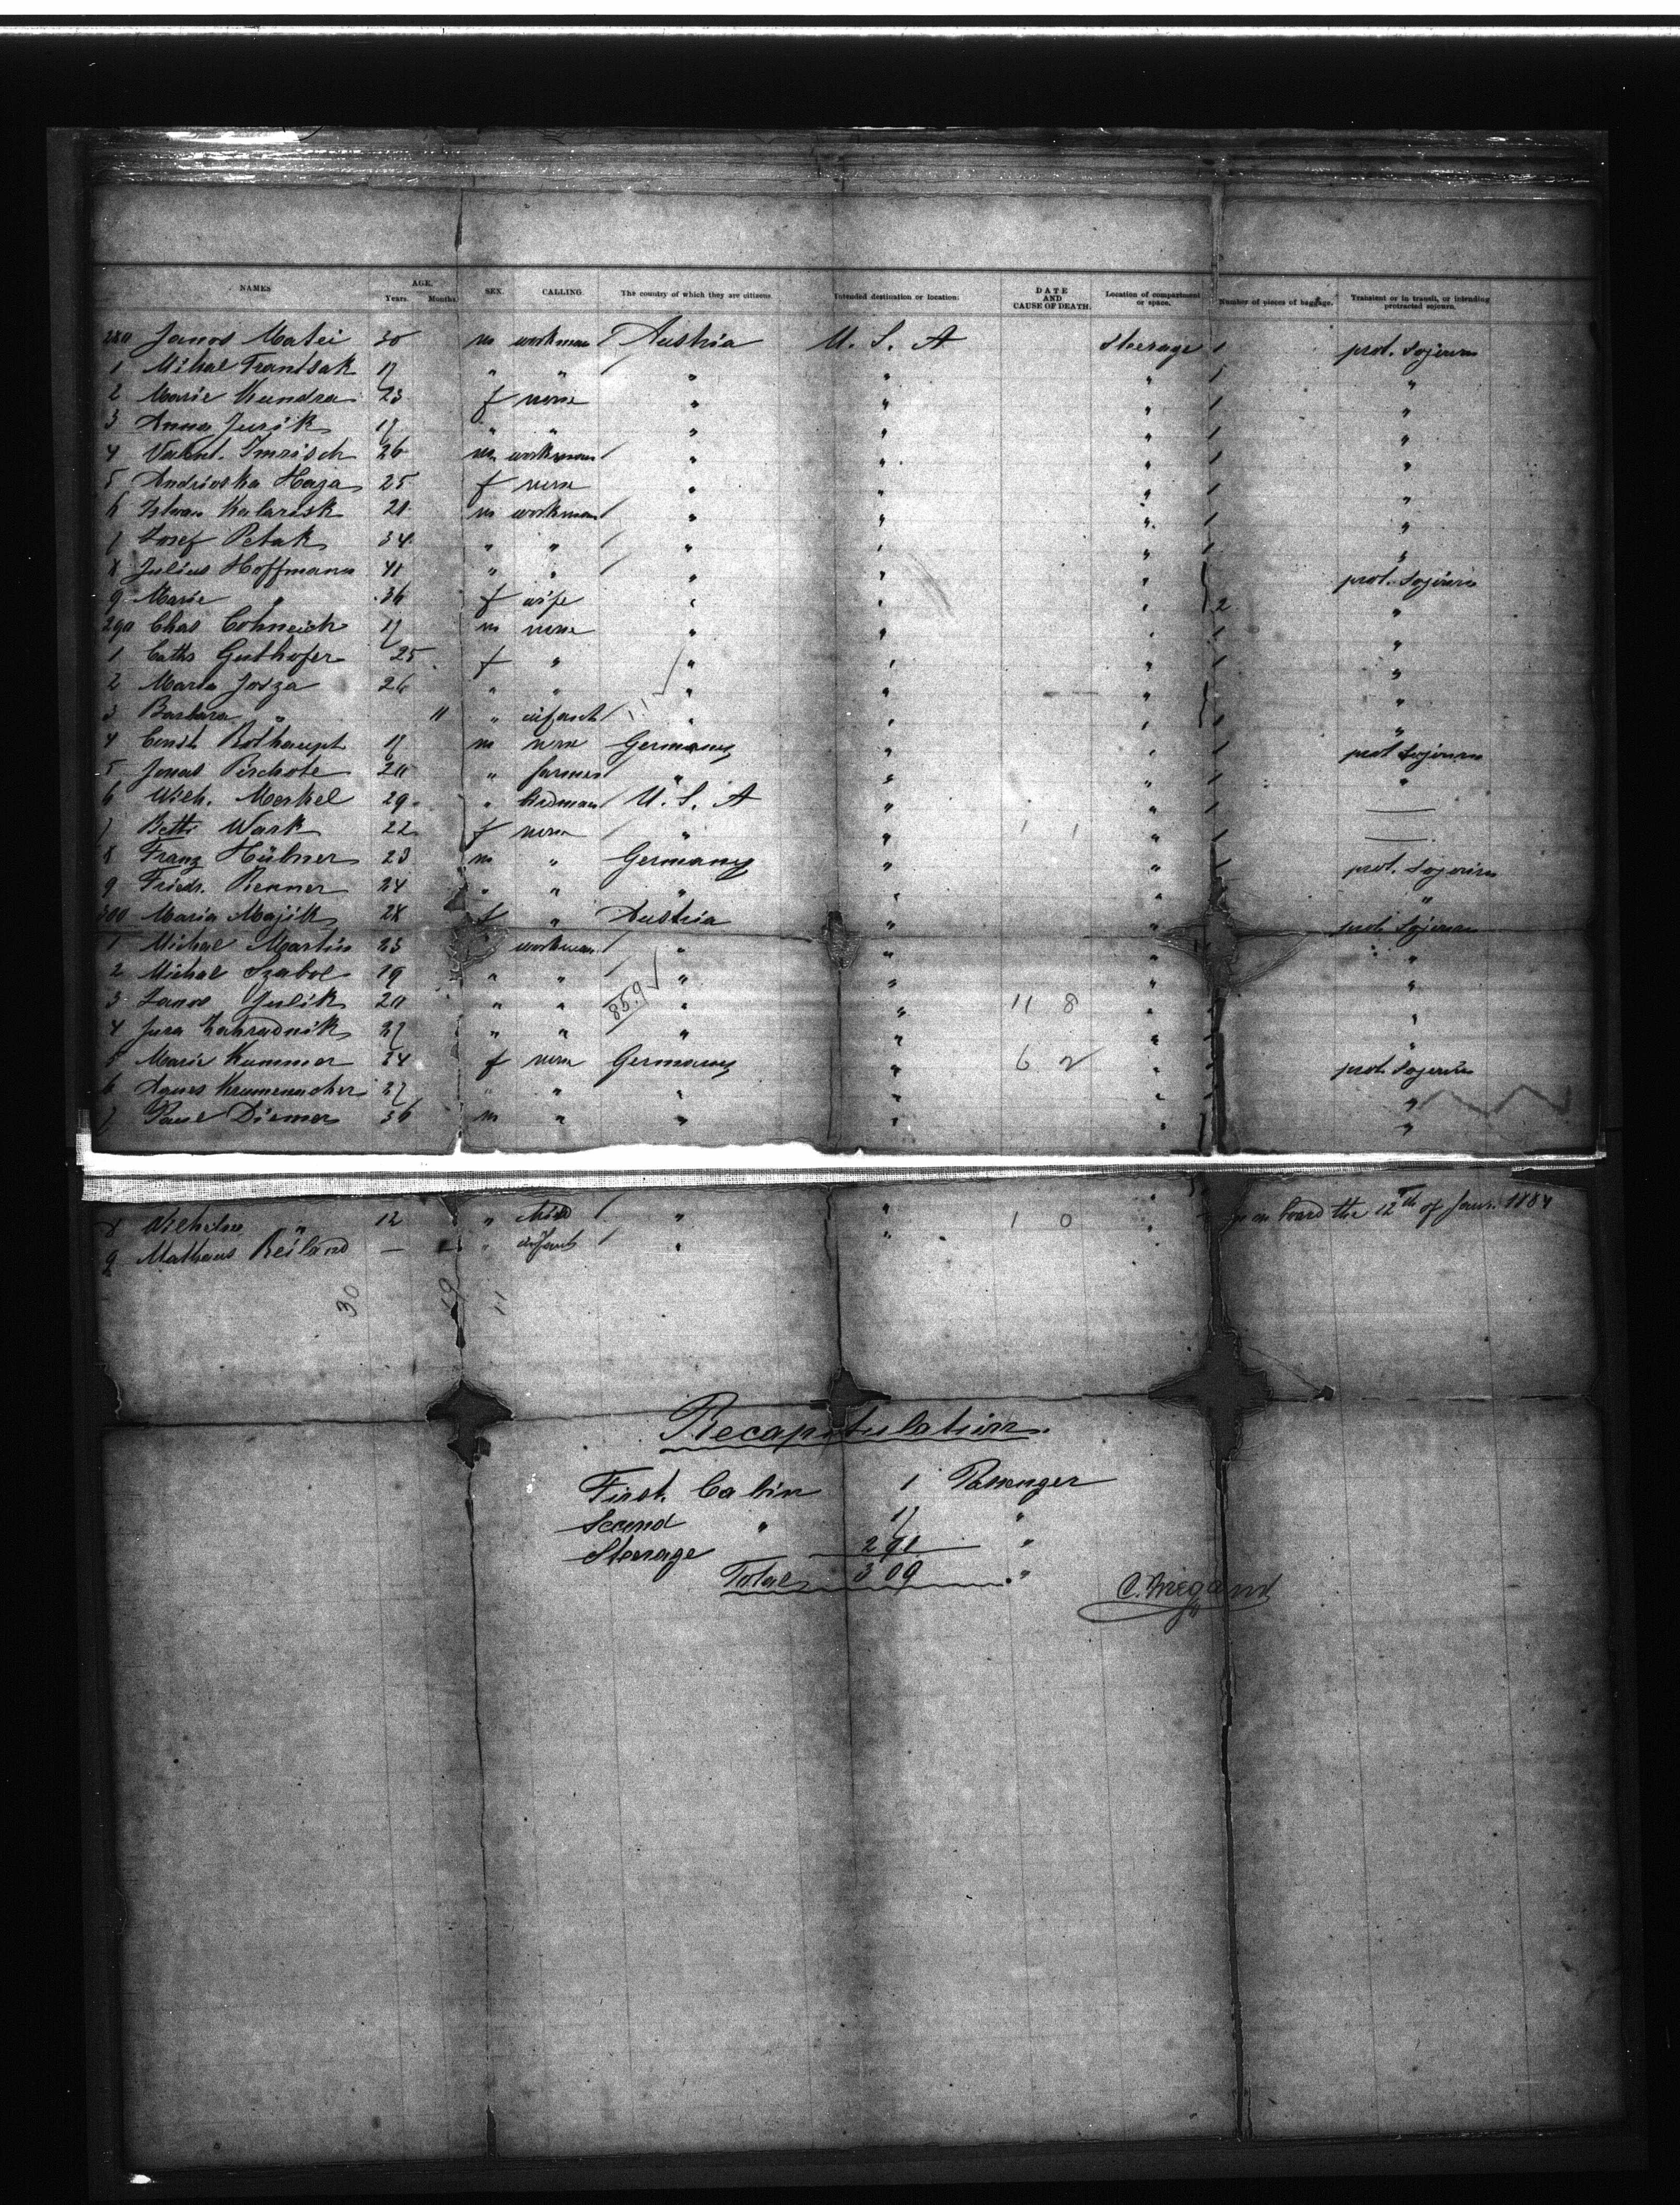 NAMES AGE. Years. Months. SEX. CALLING. The country of which they are citizens. Intended destination or location: DATE AND CAUSE OF DEATH. Location of compartment or space. Number of pieces of baggage. Transient or in transit, or intending protracted sojourn.
280 Janos Matei 30 m workman / Austria U. S. A Steerage 1 prot. Sojourn
1 Mihal Frantsak 17 " " / " " " 1 "
2 Marie Kundra 23 f none " " " 1 "
3 Anna Jurik 17 " " " " " 1 "
4 Valent. Imrisch 26 m workman / " " " 1 "
5 Andrioska Haja 25 f none " " " 1 "
6 Istvan Kalarisk 21 m workman / " " " 1 "
7 Josef Petak 34 " " / " " " 1 "
8 Julius Hoffmann 41 " " / " " " prot. Sojourn
9 Marie " 36 f wife " " " 2 "
290 Chas Cohneich 17 m none " " " 1 "
1 Caths Guthofer 25 f " " " " 1 "
2 Maria Josza 26 " " " " " "
3 Barbara " 11 " infant / " " " 1 "
4 Bothaupt 17 m none Germany " " 1 prot Sojourn
5 Jonas Pischote 20 " farmer / " " " 1 "
6 Wilh. Merkel 29 " / U. S. A " " 1 —
7 Betti Wark 22 f none / " " 1 1 " 1 —
8 Franz Hübner 23 m " Germany " " 1 prot. Sojourn
9 Friedr. Renner 24 " " " " " "
300 Maria Majik 28 f " Austria " " prot. Sojourn
1 Michal Martin 23 workman / " " " "
2 Michal Szabol 19 " " / " " " "
3 Janos Julik 20 " " 859 " " 11 8 " "
4 Jura Zahradnik 27 " " " " " "
5 Marie Kummer 24 f none Germany " 6 2 " prot. Sojourn
6 Agnes Krumenacher 27 " " " " " "
7 Paul Diemer 36 m " " " " "
8 Wilhelm " 12 " child / " " 1 0 "
9 Mathaus Reiland — " infant / " " on board the 12th of Janr. 1884
30 19 11
Recapitulation.
First. Cabin 1 Passenger
Second " 17 "
Steerage 291 "
Total 309 "
C. Wiegand